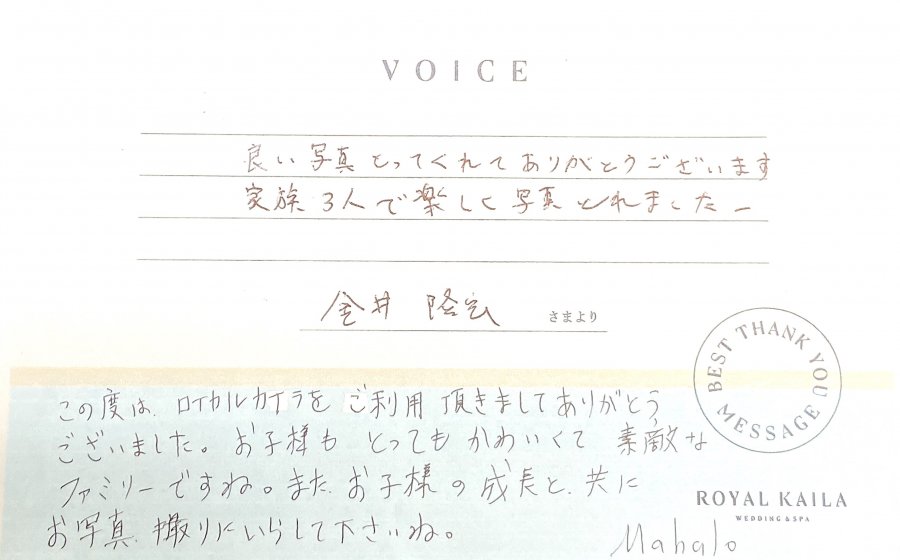 VOICE
良い写真とってくれてありがとうございます
家族3人で楽しく写真とれましたー
金井 隆宏
さまより
BEST THANK YOU MESSAGE
この度は、ロイヤルカイラをご利用頂きましてありがとう
ございました。お子様もとってもかわいくて素敵な
ファミリーですね。また、お子様の成長と共に
お写真撮りにいらして下さいね。
Mahalo
ROYAL KAILA
WEDDING & SPA